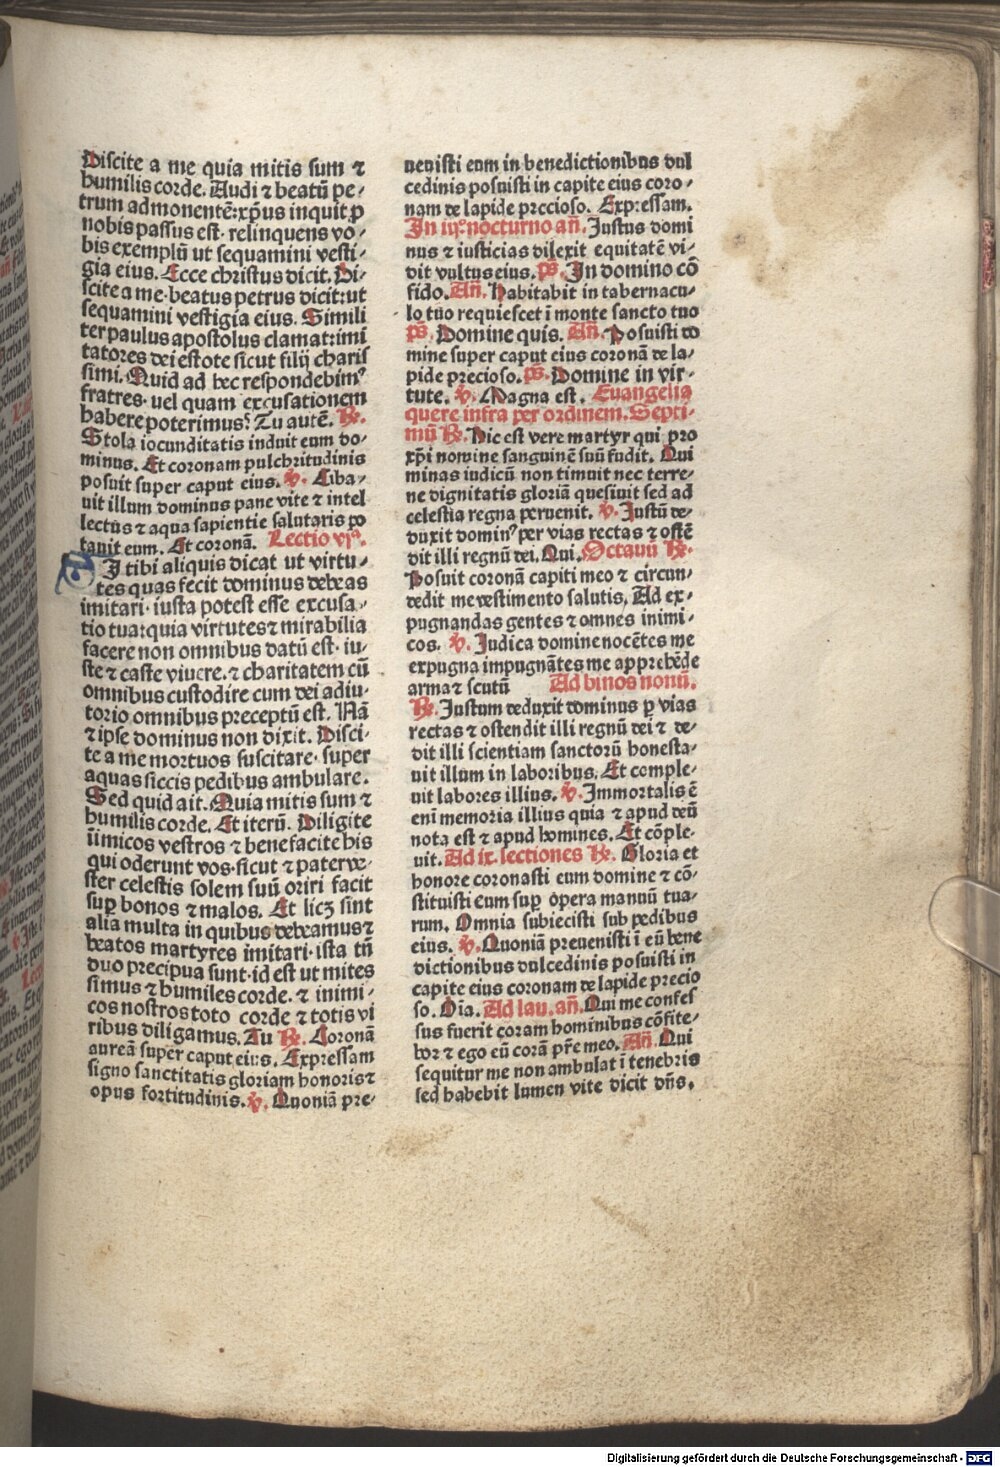 Discite a me quia mitis sum ⁊
humilis corde. Audi ⁊ beatū pe⸗
trum admonentē: xp̄us inquit ꝓ
nobis passus est· relinquens vo⸗
bis exemplū ut sequamini vesti⸗
gia eius. Ecce christus dicit. Di⸗
scite a me· beatus petrus dicit: ut
sequamini vestigia eius. Simili
ter paulus apostolus clamat: imi
tatores dei estote sicut filij charis
simi. Quid ad hec respondebimꝰ
fratres· uel quam excusationem
habere poterimus? Tu autē. ℟.
Stola iocunditatis induit eum do⸗
minus. Et coronam pulchritudinis
posuit super caput eius. ℣. Ciba⸗
uit illum dominus pane vite ⁊ intel
lectus ⁊ aqua sapientie salutaris po
tauit eum. Et coronā. Lectio vjᵃ.
SI tibi aliquis dicat ut virtu⸗
tes quas fecit dominus debeas
imitari· iusta potest esse excusa⸗
tio tua: quia virtutes ⁊ mirabilia
facere non omnibus datū est· iu⸗
ste ⁊ caste viuere. ⁊ charitatem cū
omnibus custodire cum dei adiu⸗
torio omnibus preceptū est. Nā
⁊ ipse dominus non dixit. Disci⸗
te a me mortuos suscitare· super
aquas siccis pedibus ambulare.
Sed quid ait. Quia mitis sum ⁊
humilis corde. Et iterū. Diligite
īimicos vestros ⁊ benefacite his
qui oderunt vos· sicut ⁊ pater ve⸗
ster celestis solem suū oriri facit
suꝑ bonos ⁊ malos. Et licꝫ sint
alia multa in quibus debeamus ⁊
beatos martyres imitari· ista tn̄
duo precipua sunt· id est ut mites
simus ⁊ humiles corde. ⁊ inimi⸗
cos nostros toto corde ⁊ totis vi
ribus diligamus. Tu ℟. Coronā
aureā super caput eius. Expressam
signo sanctitatis gloriam honoris ⁊
opus fortitudinis. ℣. Quoniā pre⸗
uenisti eum in benedictionibus dul
cedinis posuisti in capite eius coro⸗
nam de lapide precioso. Expressam.
In iijᵒ nocturno an̄. Justus domi
nus ⁊ iusticias dilexit equitatē vi⸗
dit vultus eius. ps̄. In domino cō
fido. An̄. Habitabit in tabernacu⸗
lo tuo requiescet ī monte sancto tuo
ps̄. Domine quis. An̄. Posuisti do
mine super caput eius coronā de la⸗
pide precioso. ps̄. Domine in vir⸗
tute. ℣. Magna est. Euangelia
quere infra per ordinem. Septi⸗
mū ℟. Hic est vere martyr qui pro
xp̄i nomine sanguinē suū fudit. Qui
minas iudicū non timuit nec terre⸗
ne dignitatis gloriā quesiuit sed ad
celestia regna peruenit. ℣. Justū de⸗
duxit dominꝰ per vias rectas ⁊ ostē
dit illi regnū dei. Qui. Octauū ℟.
Posuit coronā capiti meo ⁊ circun⸗
dedit me vestimento salutis. Ad ex⸗
pugnandas gentes ⁊ omnes inimi⸗
cos. ℣. Judica domine nocētes me
expugna impugnātes me apprehēde
arma ⁊ scutū Ad binos nonū.
℟. Justum deduxit dominus ꝑ vias
rectas ⁊ ostendit illi regnū dei ⁊ de⸗
dit illi scientiam sanctorū honesta⸗
uit illum in laboribus. Et comple⸗
uit labores illius. ℣. Immortalis ē
enī memoria illius quia ⁊ apud deū
nota est ⁊ apud homines. Et cōple⸗
uit. Ad ix. lectiones ℟. Gloria et
honore coronasti eum domine ⁊ cō⸗
stituisti eum suꝑ opera manuū tua⸗
rum. Omnia subiecisti sub pedibus
eius. ℣. Quoniā preuenisti ī eū bene
dictionibus dulcedinis posuisti in
capite eius coronam de lapide precio
so. Oīa. Ad lau. an̄. Qui me confes
sus fuerit coram hominibus cōfite⸗
bor ⁊ ego eū corā pr̄e meo. An̄. Qui
sequitur me non ambulat ī tenebris
sed habebit lumen vite dicit dn̄s.
Digitalisierung gefördert durch die Deutsche Forschungsgemeinschaft - DFG